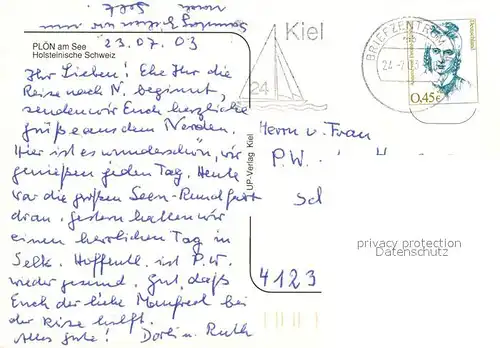 PLÖN am See
Holsteinische Schweiz
23.07.03
Ihr Lieben! Ehe Ihr die
Reise nach N. beginnt,
senden wir Euch herzliche
Grüße aus dem Norden.
Hier ist es wunderschön, wir
genießen jeden Tag. Heute
war die großen Seen-Rundfahrt
dran. Gestern hatten wir
einen herrlichen Tag in
Selk. Hoffentl. ist P.W.
wieder gesund. Gut, daß
Euch der liebe Manfred bei
der Reise hilft.
Alles Gute! Dorli u. Ruth
UP-Verlag Kiel
Kiel
24
BRIEFZENTRUM
24.-7.03
Deutschland
0,45€
Herrn u. Frau
P.W.
Sch
4123
privacy protection
Datenschutz